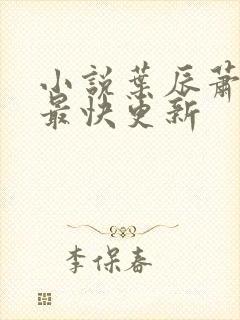 小說葉辰蕭
最快更新
李保春